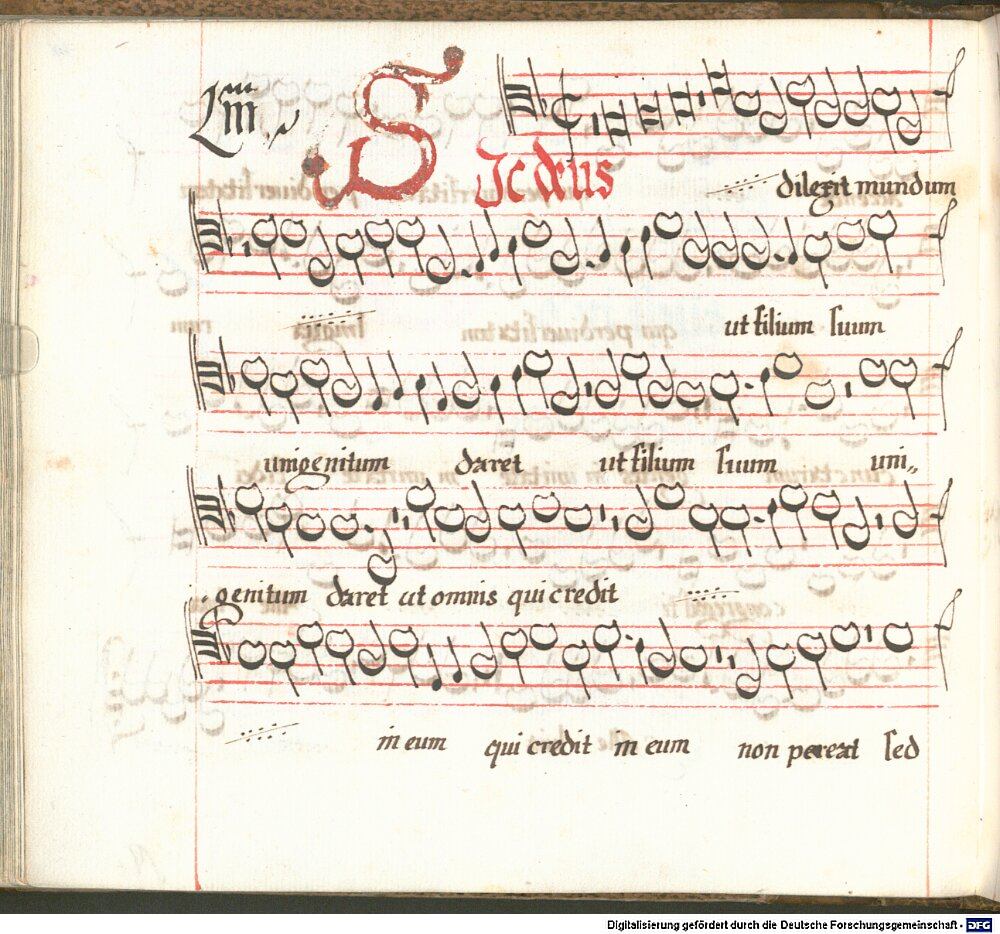 Liii
Sic deus
dilexit mundum
ut filium suum
unigenitum daret ut filium suum uni„
genitum daret ut omnis qui credit
in eum qui credit in eum non pereat sed
Digitalisierung gefördert durch die Deutsche Forschungsgemeinschaft - DFG